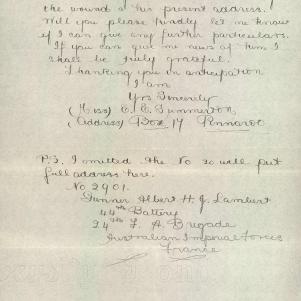 the wound & his present address.
Will you please kindly let me know
if I can give any further particulars.
If you can give me news of him I
shall be truly grateful.
Thanking you in anticipation
I am
Yrs Sincerely
(Miss) C. E. Tummerton
(Address) Box 17 Pinnaroo
P.S. I omitted the No so will put
full address here.
No 2901.
Gunner Albert H. J. Lambert
44th Battery
24th F. A. Brigade
Australian Imperial Forces
France